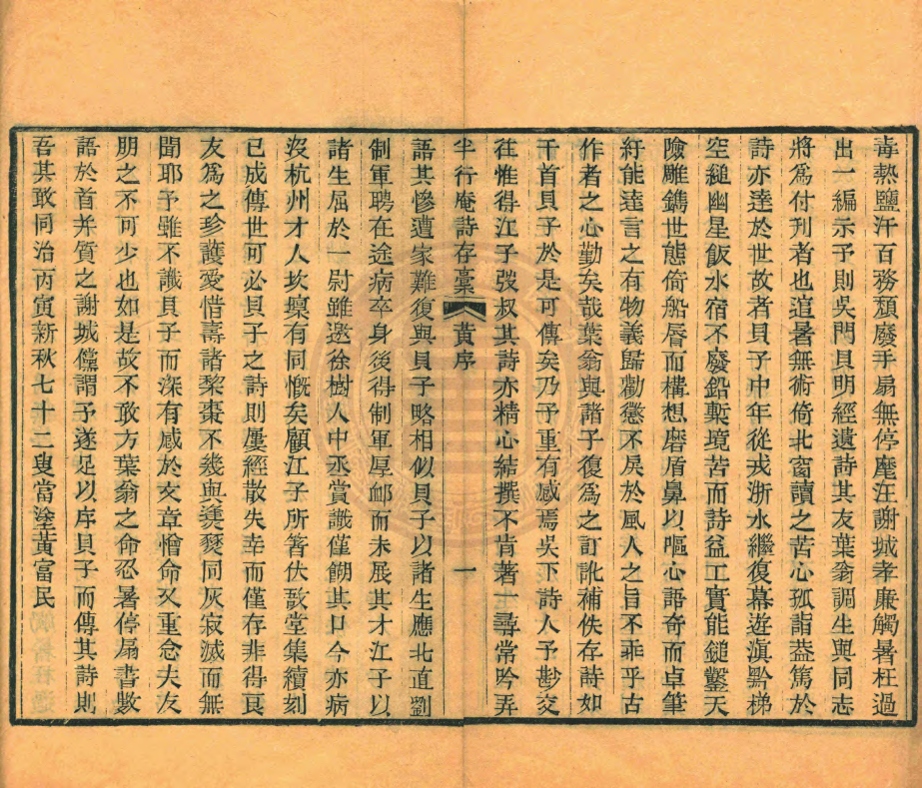 毒熱鹽汗百務頹廢手扇無停麾汪謝城孝廉觸暑枉過
出一編示予則吳門貝明經遺詩其友葉翁調生與同志
將爲付刊者也逭暑無術倚北窗讀之苦心孤詣葢篤於
詩亦達於世故者貝子中年從戎浙水繼復幕遊滇黔梯
空縋幽星飯水宿不廢鉛槧境苦而詩益工實能鎚鑿天
險雕鐫世態倚船脣而構想磨盾鼻以嘔心語奇而卓筆
紆能達言之有物義歸勸懲不戾於風人之旨不乖乎古
作者之心勤矣哉葉翁與諸子復爲之訂訛補佚存詩如
干首貝子於是可傳矣乃予重有感焉吳下詩人予尠交
往惟得江子弢叔其詩亦精心結撰不肯著一尋常吟弄
半行庵詩存稾 黄序 一
語其慘遭家難復與貝子略相似貝子以諸生應北直劉
制軍聘在途病卒身後得制軍厚卹而未展其才江子以
諸生屈於一尉雖邀徐樹人中丞賞識僅餬其口今亦病
沒杭州才人坎壈有同慨矣顧江子所箸伏敔堂集續刻
已成傳世可必貝子之詩則屢經散失幸而僅存非得良
友爲之珍護愛惜壽諸棃棗不幾與爨燹同灰寂滅而無
聞耶予雖不識貝子而深有感於文章憎命又重念夫友
朋之不可少也如是故不敢方葉翁之命忍暑停扇書數
語於首并質之謝城儻謂予遂足以序貝子而傳其詩則
吾其敢同治丙寅新秋七十二叟當塗黄富民